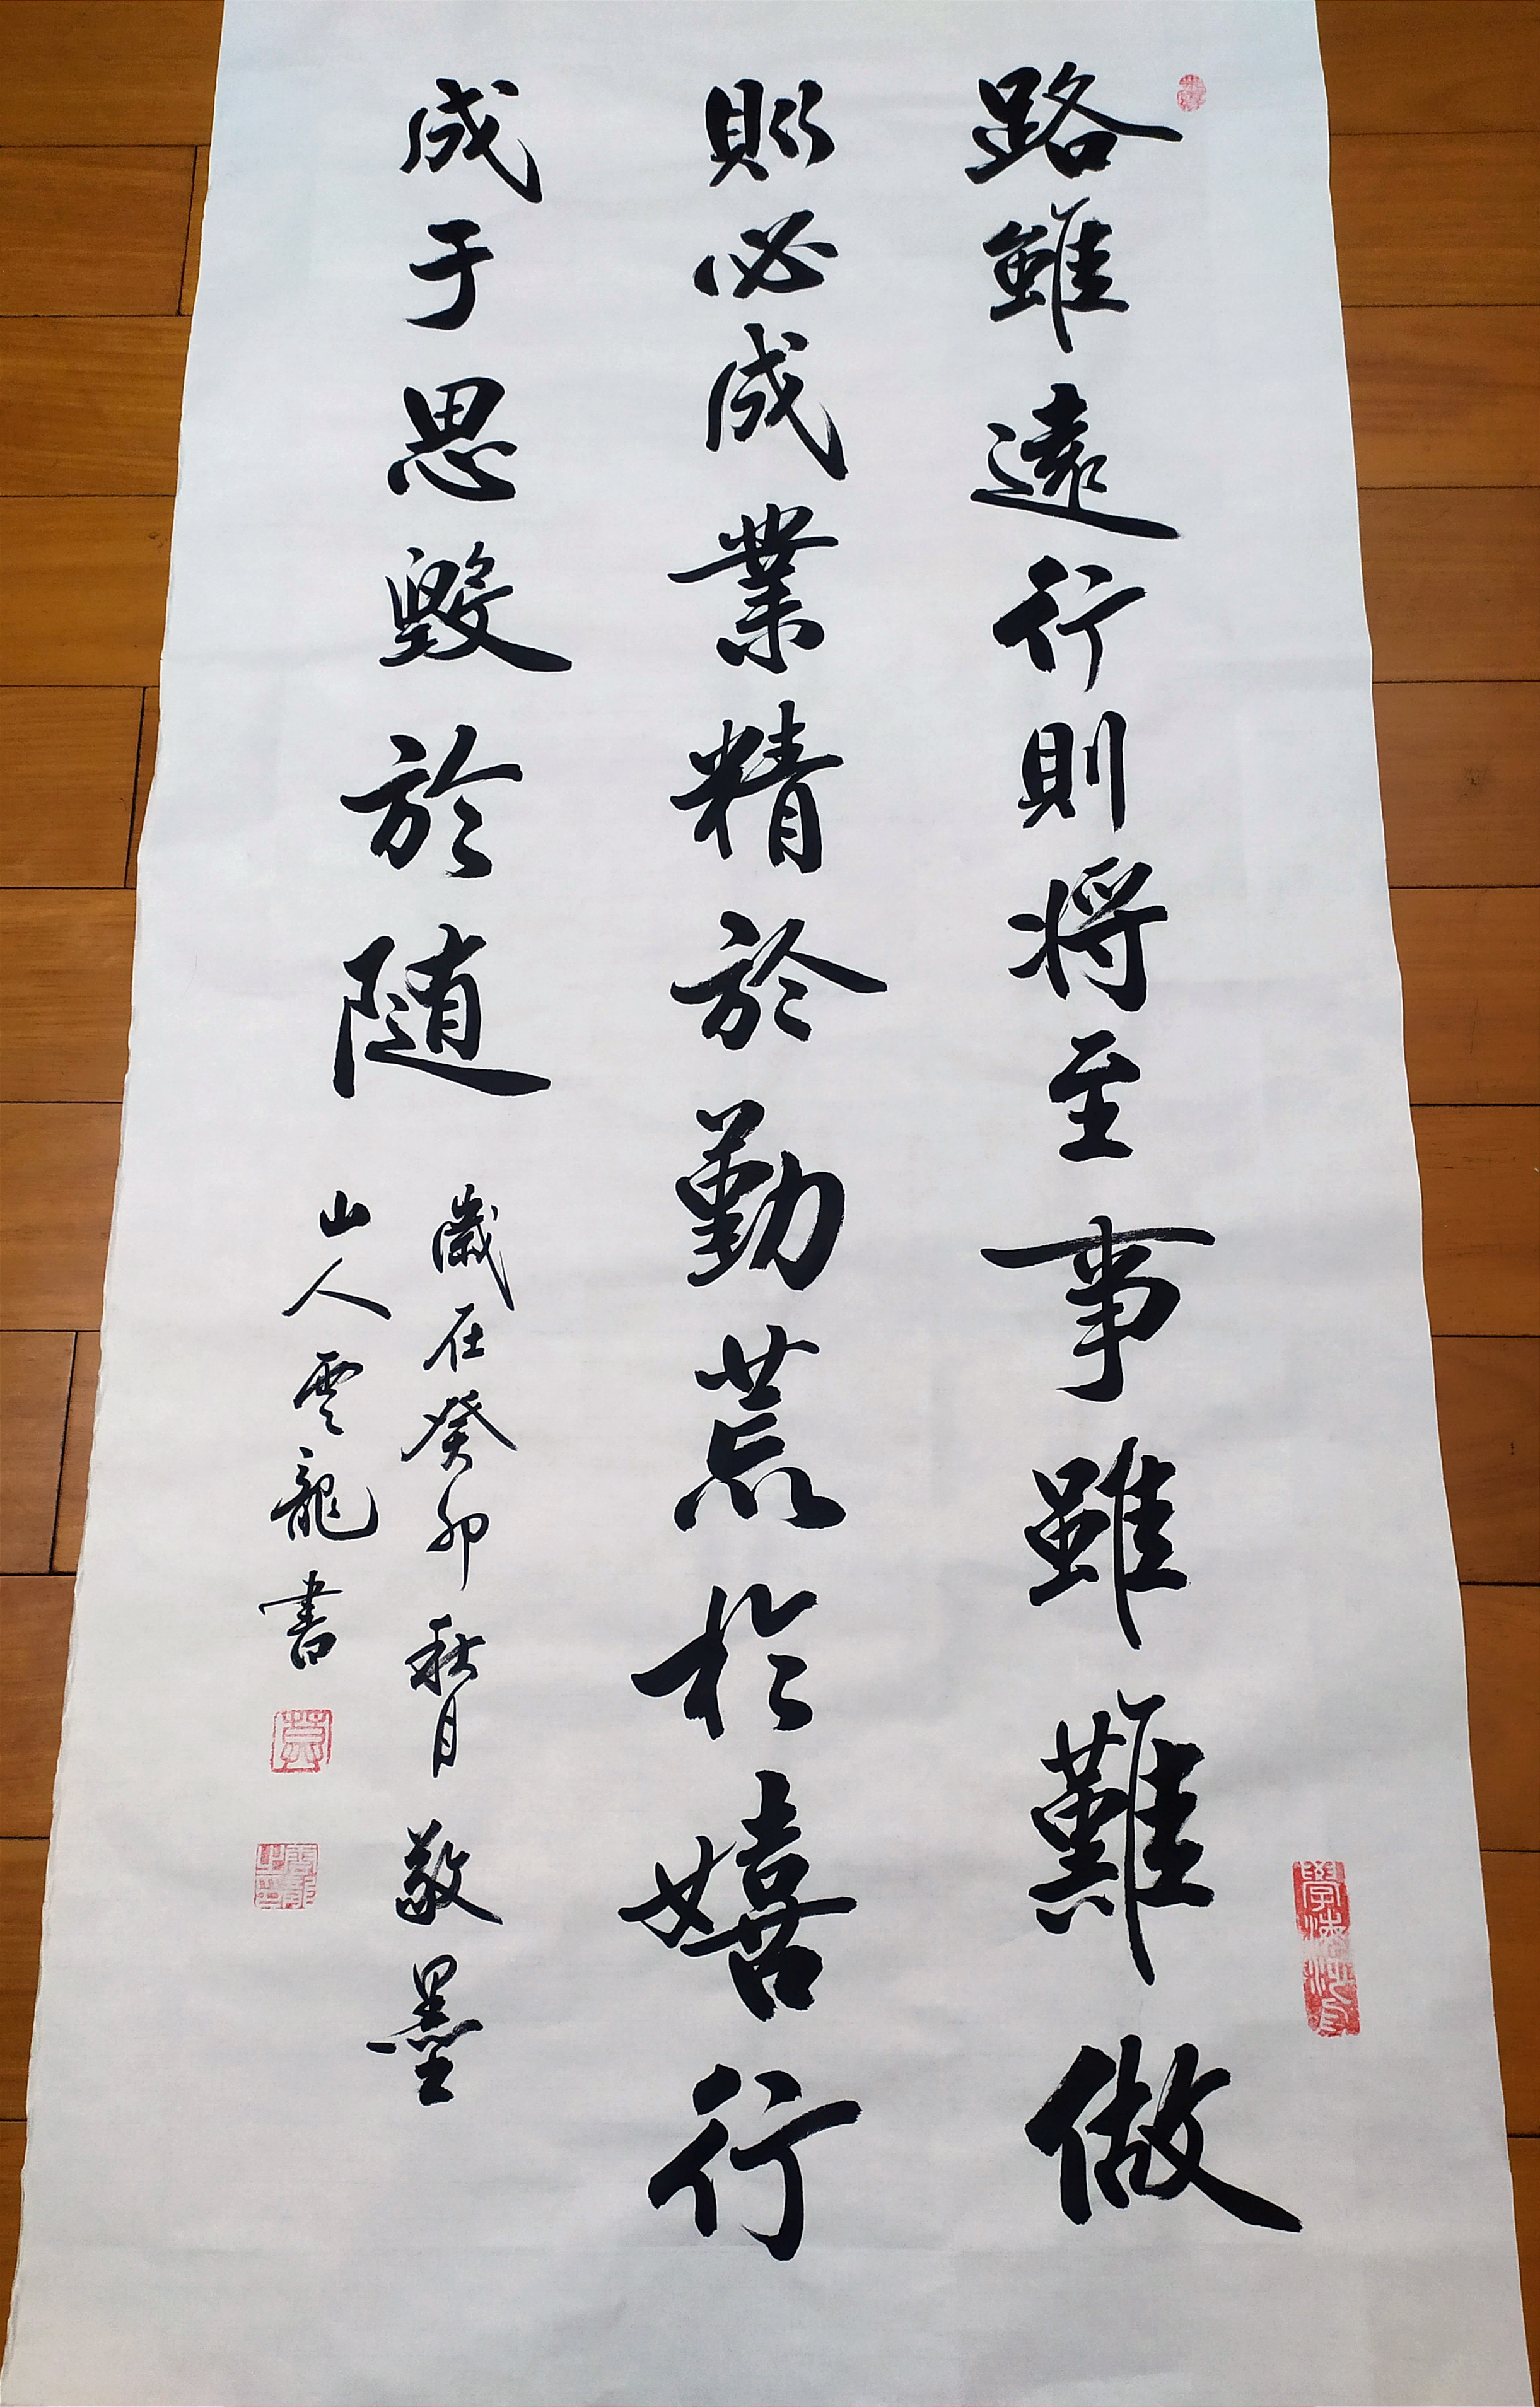 路雖遠行則将至事雖難做
則必成業精於勤荒於嬉行
成于思毀於随
歲在癸卯秋月敬墨
山人雲龍書